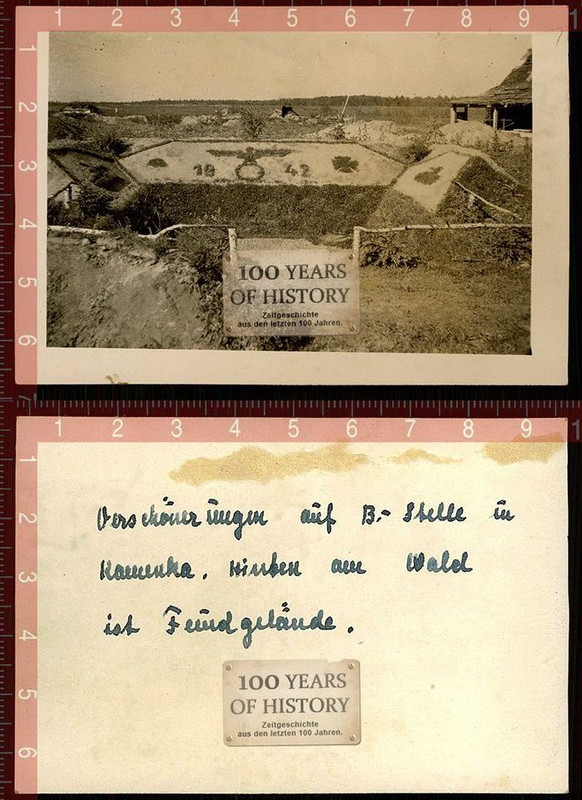 1 2 3 4 5 6 7 8 9 1
1
2
3
4
5
6
19 42
100 YEARS
OF HISTORY
Zeitgeschichte
aus den letzten 100 Jahren.
1 2 3 4 5 6 7 8 9 1
1
2
3
4
5
6
Verschönerungen auf B.- Stelle in
Kamenka. Hinten am Wald
ist Feindgelände.
100 YEARS
OF HISTORY
Zeitgeschichte
aus den letzten 100 Jahren.